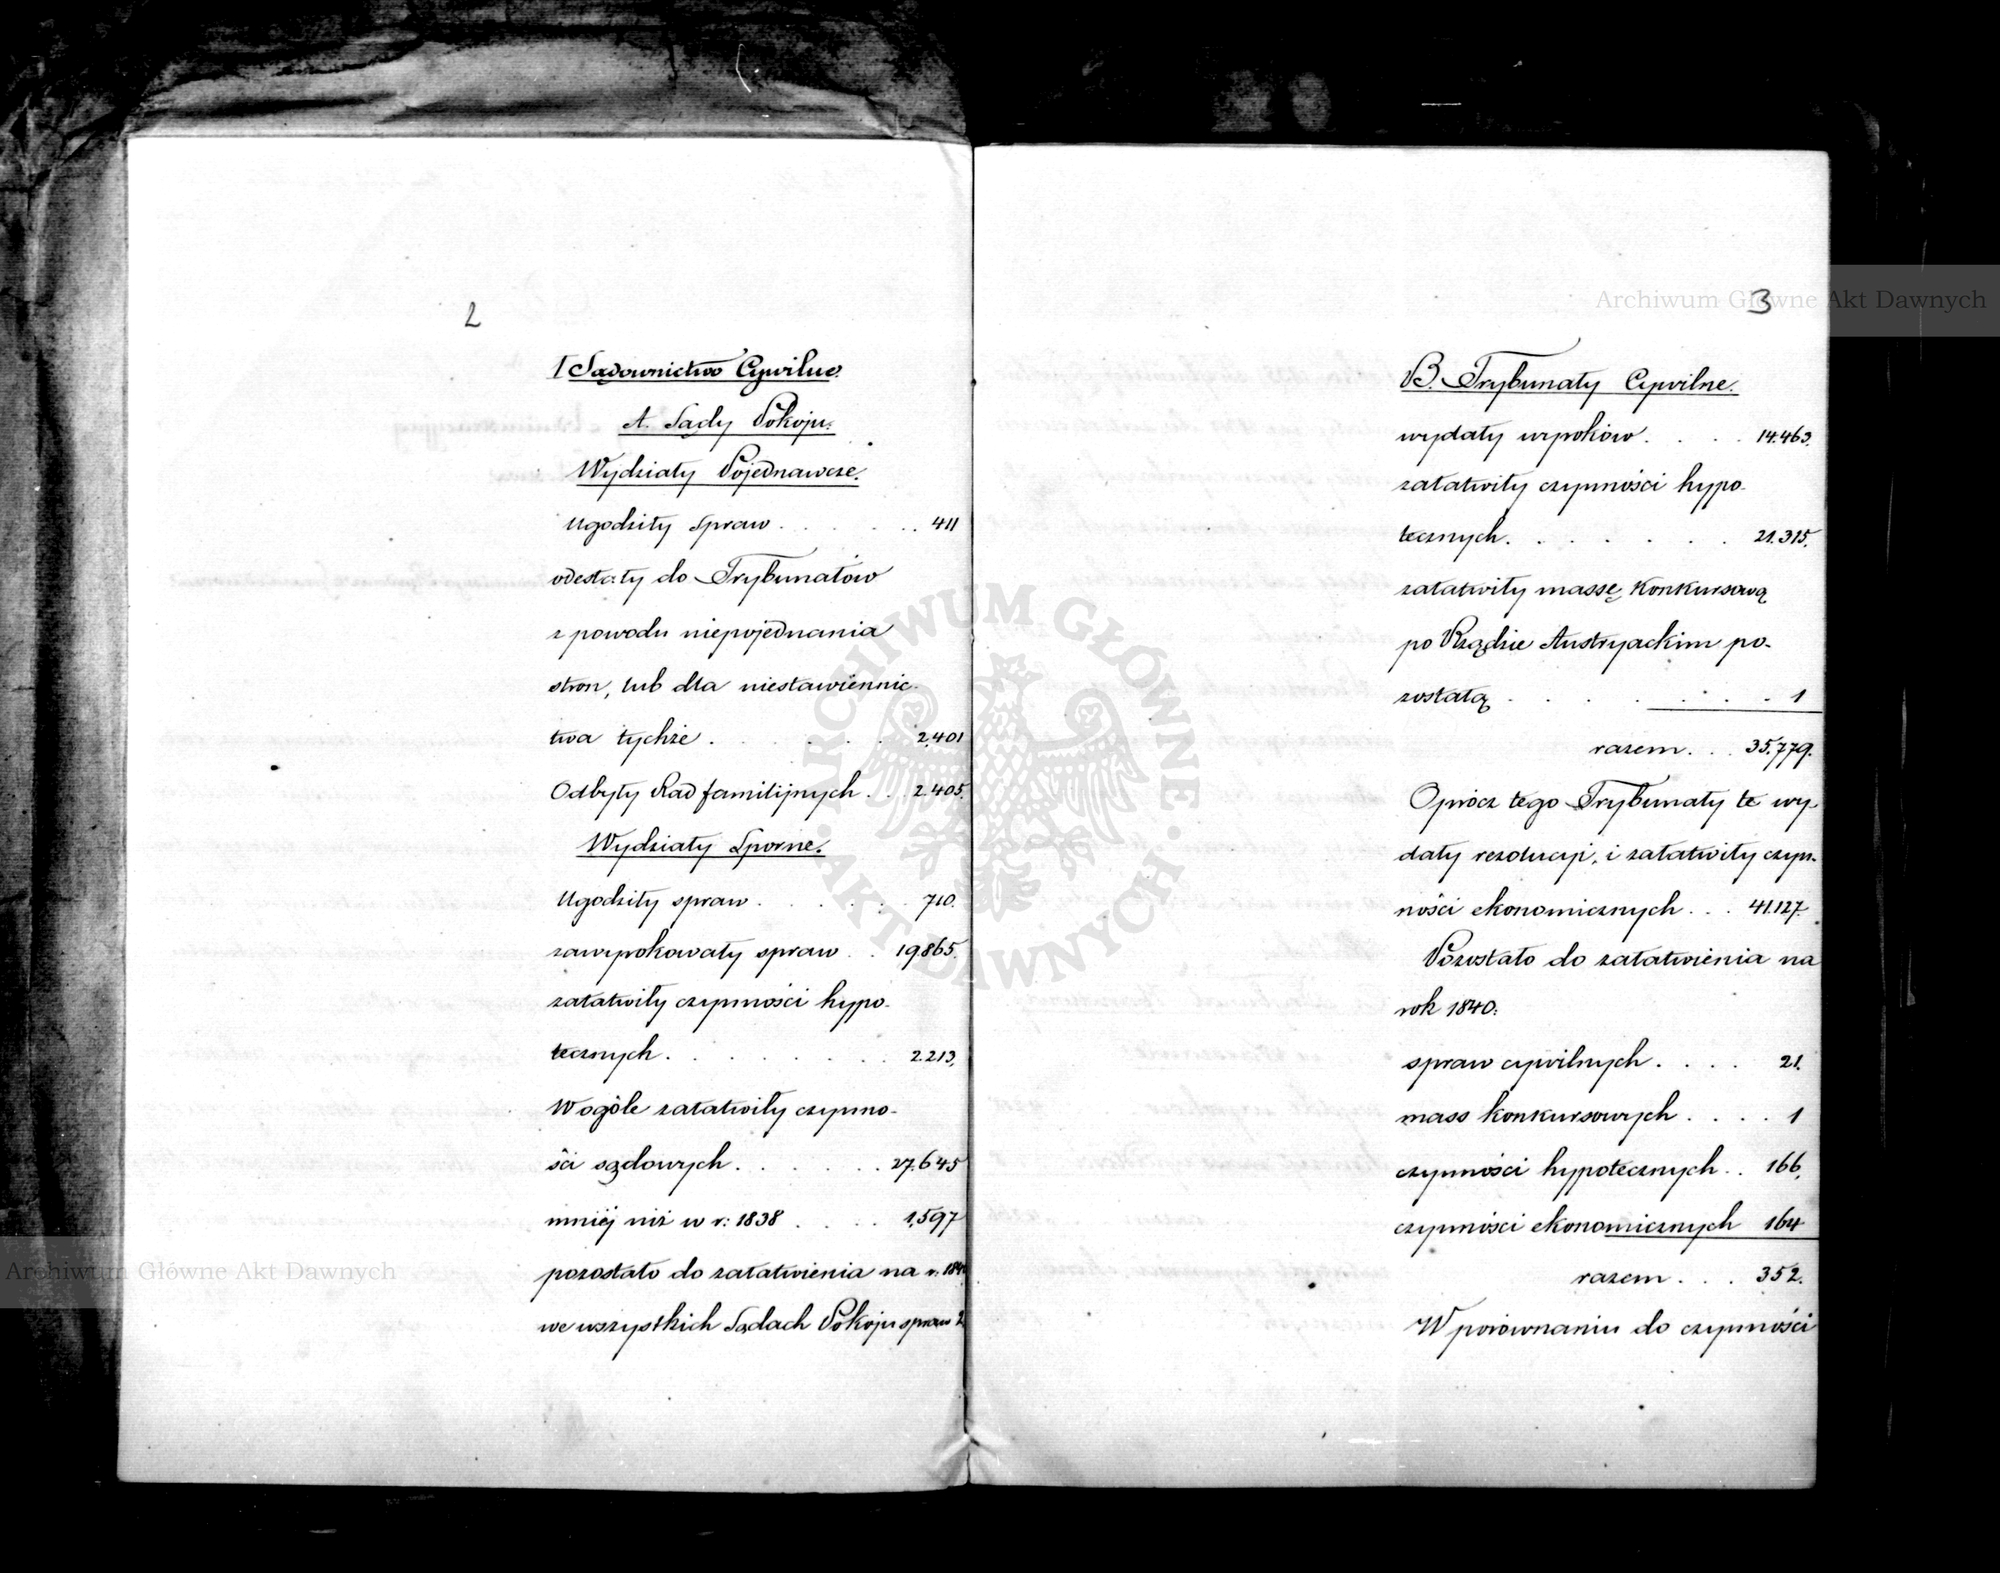 2
I Sądownictwo Cywilne.
A. Sądy Pokoju.
Wydziały Pojednawcze.
Ugodziły Spraw . . . . . . 411
odesłały do Trybunałów
z powodu niepojednania
stron, lub dla niestawiennic-
twa tychże . . . . . . 2,401
Odbyły Rad familijnych . . 2.405.
Wydziały Sporne.
Ugodziły spraw . . . . . 710.
zawyrokowały spraw . . 19,865.
załatwiły czynności hypo-
tecznych . . . . . . . 2.213,
W ogóle załatwiły czynno-
ści sądowych . . . . . . 27.645
mniéj niż w r: 1838 . . . . 1,597
pozostało do załatwienia na r. 184
we wszystkich Sądach Pokoju spraw 2
3
B. Trybunały Cywilne.
wydały wyroków . . . . 14.463.
załatwiły czynności hypo-
tecznych . . . . . . . 21.315.
załatwiły massę konkursową
po Rządzie Austryackim po-
zostałą . . . . . . . 1
razem . . . 35.779.
Oprócz tego Trybunały te wy-
dały rezolucyi, i załatwiły czyn-
ności ekonomicznych . . . 41.127.
Pozostało do załatwienia na
rok 1840:
spraw cywilnych . . . . 21.
mass konkursowych . . . . 1
czynności hypotecznych . . 166,
czynności ekonomicznych 164
razem . . . 352.
W porównaniu do czynności
Archiwum Główne Akt Dawnych
Archiwum Główne Akt Dawnych
ARCHIWUM GŁÓWNE · AKT DAWNYCH ·